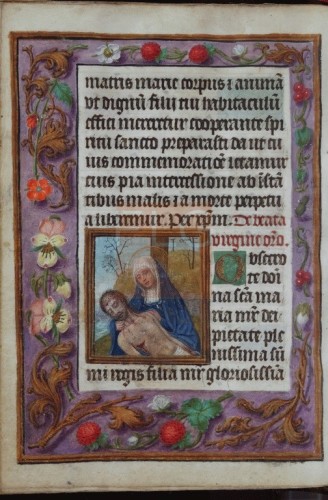 matris marie corpus ⁊ animã
vt dignũ filij tui habitaculũ
effici mereretur cooperante spi
ritu sancto preparasti da ut cu
ius commemoratiõe letamur
eius pia intercessione ab ĩstã
tibus malis ⁊ a morte perpetu
a liberemur. Per xp̃m. De beata
virgine oro.
Obsecro
te domi
na scã ma
ria mr̃ dei
pietate ple
nissima sũ
mi regis filia mr̃ gloriosissia